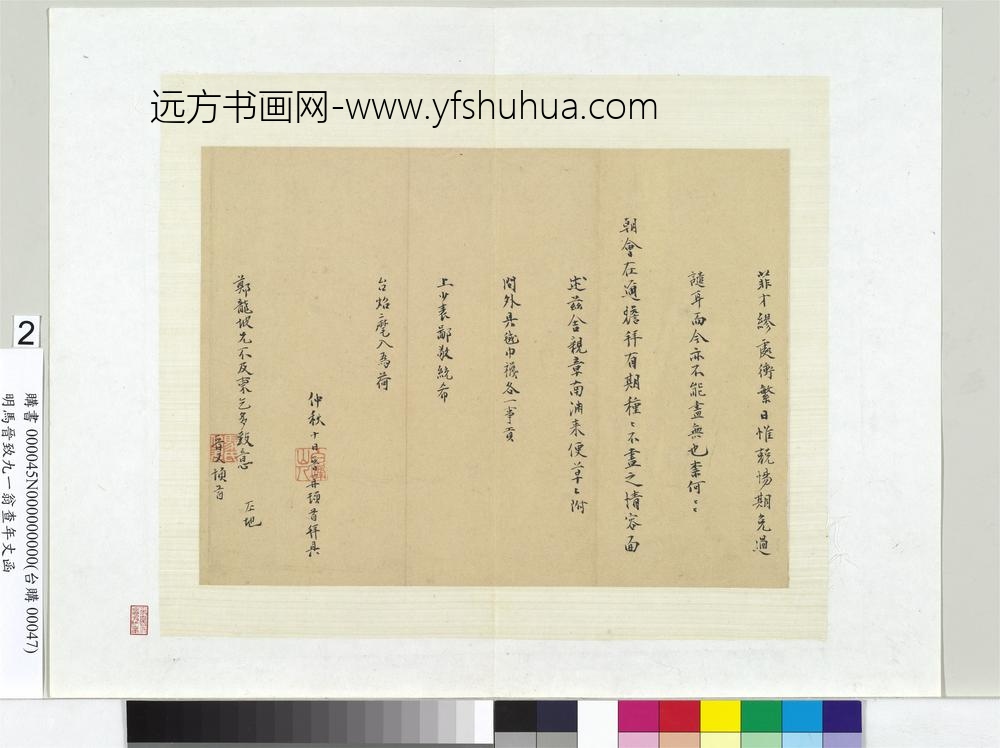 远方书画网-www.yfshuhua.com
菲才繆處衝繁日惟兢惕期免過
譴耳而今亦不能盡無也柰何〻〻
朝會在邇啓拜有期種〻不盡之情容面
述茲舍親章南浦來便草〻附
問外具巾襪各一事貢
上少表鄙敬統希
台炤麾入為荷
仲秋十日晉再頓首拜具
鄭龍坡兄不及柬乞多致意
晉又頓首
左地
2
購書 000045N000000000(台購 00047)
明馬晉致九一翁查年丈函